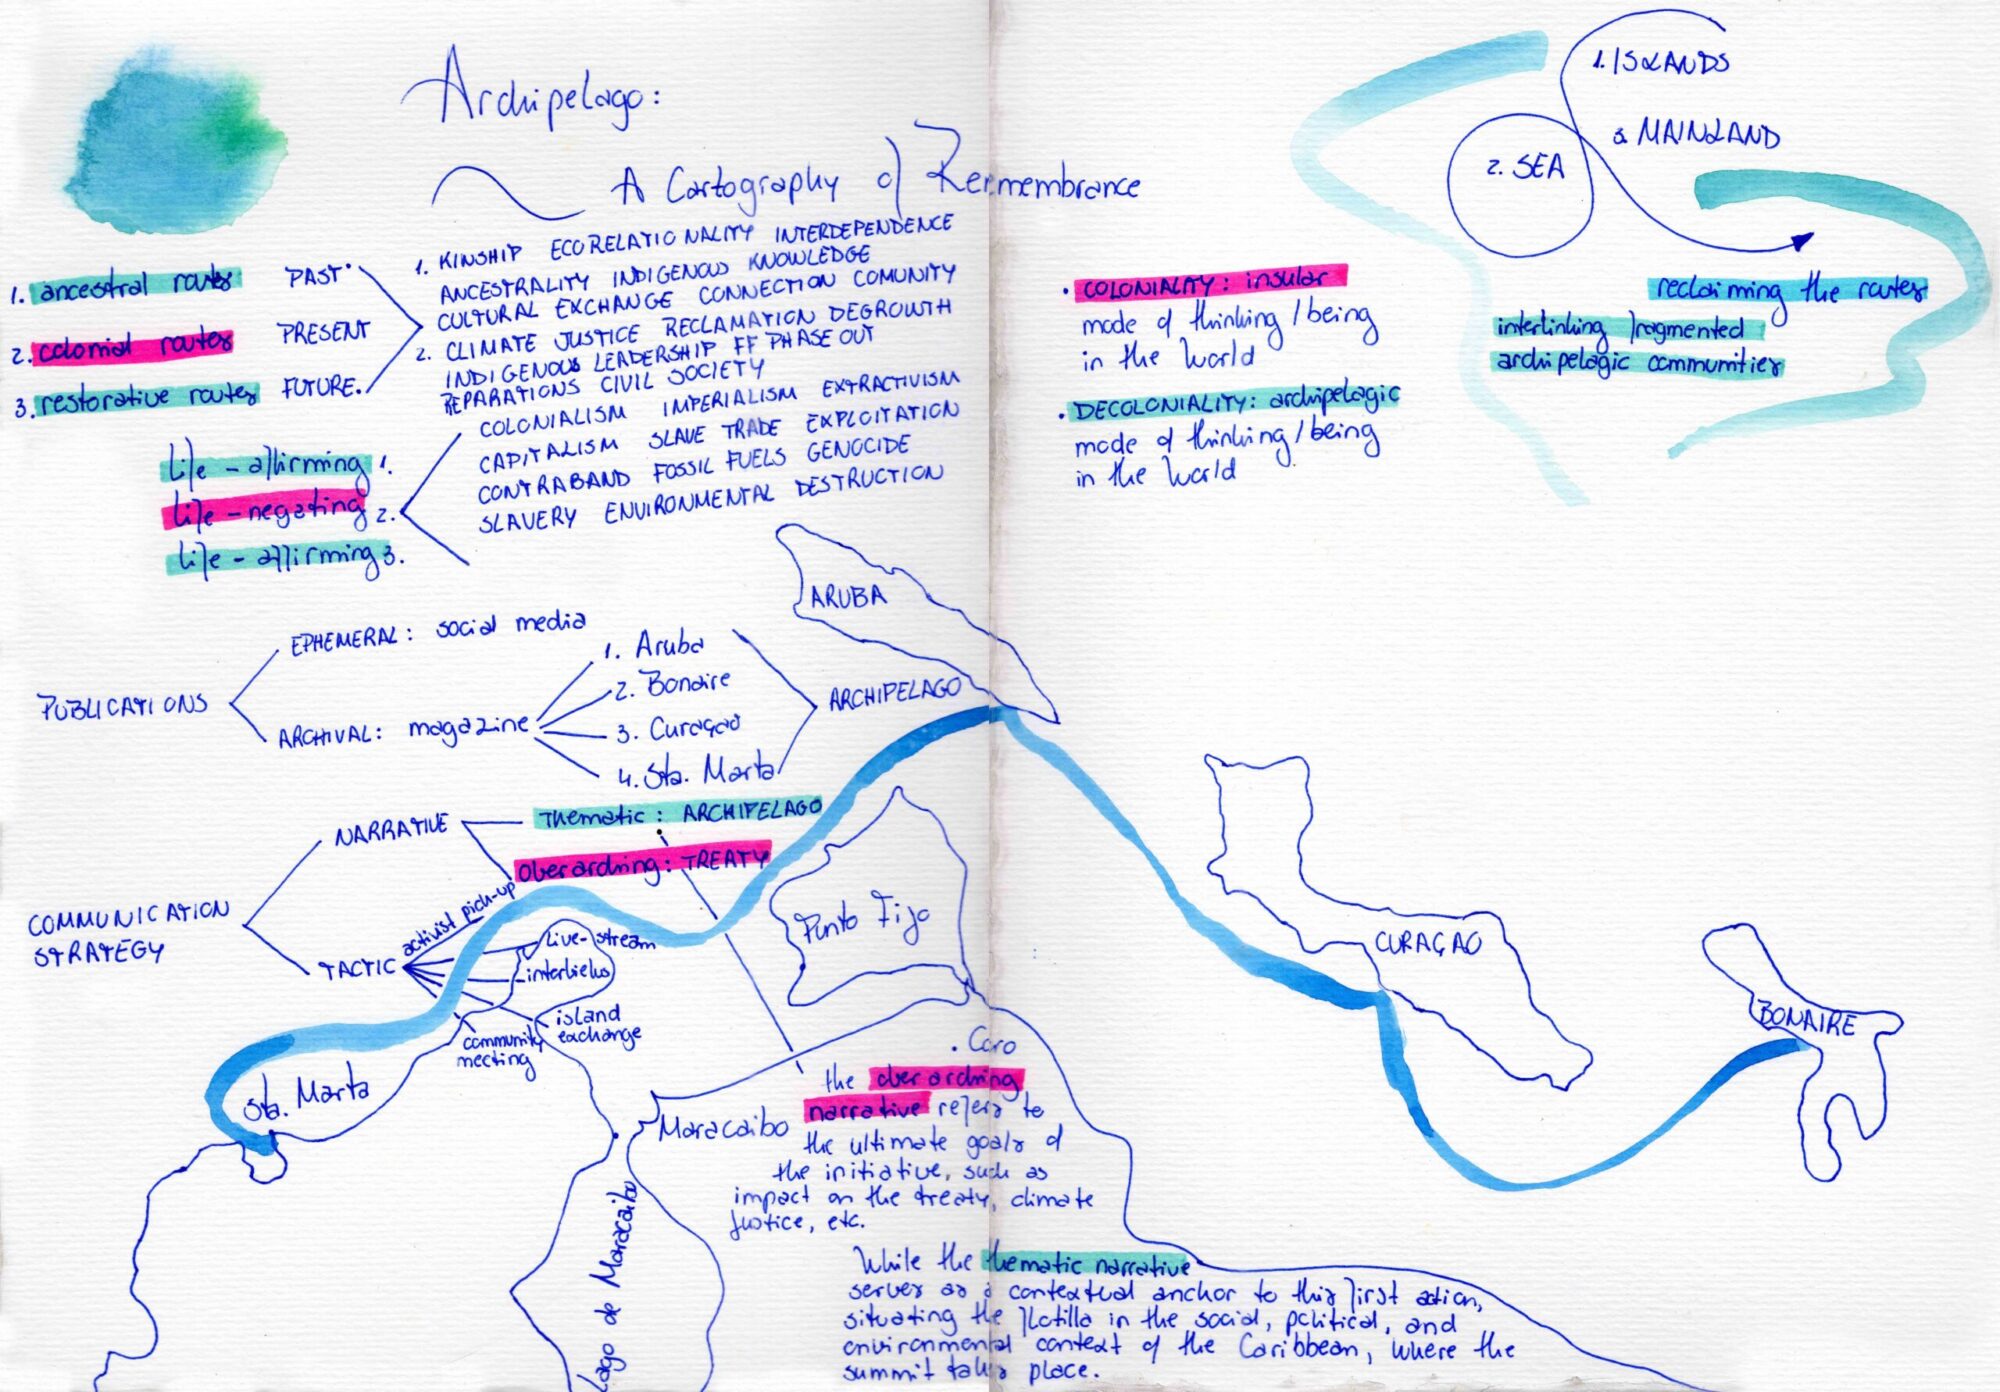 Archipelago:
A Cartography of Remembrance
1. ancestral routes PAST
2. colonial routes PRESENT
3. restorative routes FUTURE
1. KINSHIP ECORELATIONALITY INTERDEPENDENCE
ANCESTRALITY INDIGENOUS KNOWLEDGE
CULTURAL EXCHANGE CONNECTION COMUNITY
2. CLIMATE JUSTICE RECLAMATION DEGROWTH
INDIGENOUS LEADERSHIP FF PHASE OUT
REPARATIONS CIVIL SOCIETY
life-affirming 1.
life-negating 2.
life-affirming 3.
COLONIALISM IMPERIALISM EXTRACTIVISM
CAPITALISM SLAVE TRADE EXPLOITATION
CONTRABAND FOSSIL FUELS GENOCIDE
SLAVERY ENVIRONMENTAL DESTRUCTION
PUBLICATIONS
EPHEMERAL: social media
ARCHIVAL: magazine
1. Aruba
2. Bonaire
3. Curaçao
4. Sta. Marta
ARCHIPELAGO
COMMUNICATION
STRATEGY
NARRATIVE
Thematic: ARCHIPELAGO
Overarching: TREATY
TACTIC
activist pick-up
live-stream
interviews
island
exchange
community
meeting
1. ISLANDS
2. SEA
3. MAINLAND
• COLONIALITY: insular
mode of thinking/being
in the world
• DECOLONIALITY: archipelagic
mode of thinking/being
in the world
reclaiming the routes
interlinking fragmented
archipelagic communities
ARUBA
CURAÇAO
BONAIRE
Punto Fijo
. Coro
Sta. Marta
Maracaibo
Lago de Maracaibo
the overarching
narrative refers to
the ultimate goals of
the initiative, such as
impact on the treaty, climate
justice, etc.
While the thematic narrative
serves as a contextual anchor to this first action,
situating the flotilla in the social, political, and
environmental context of the Caribbean, where the
summit takes place.